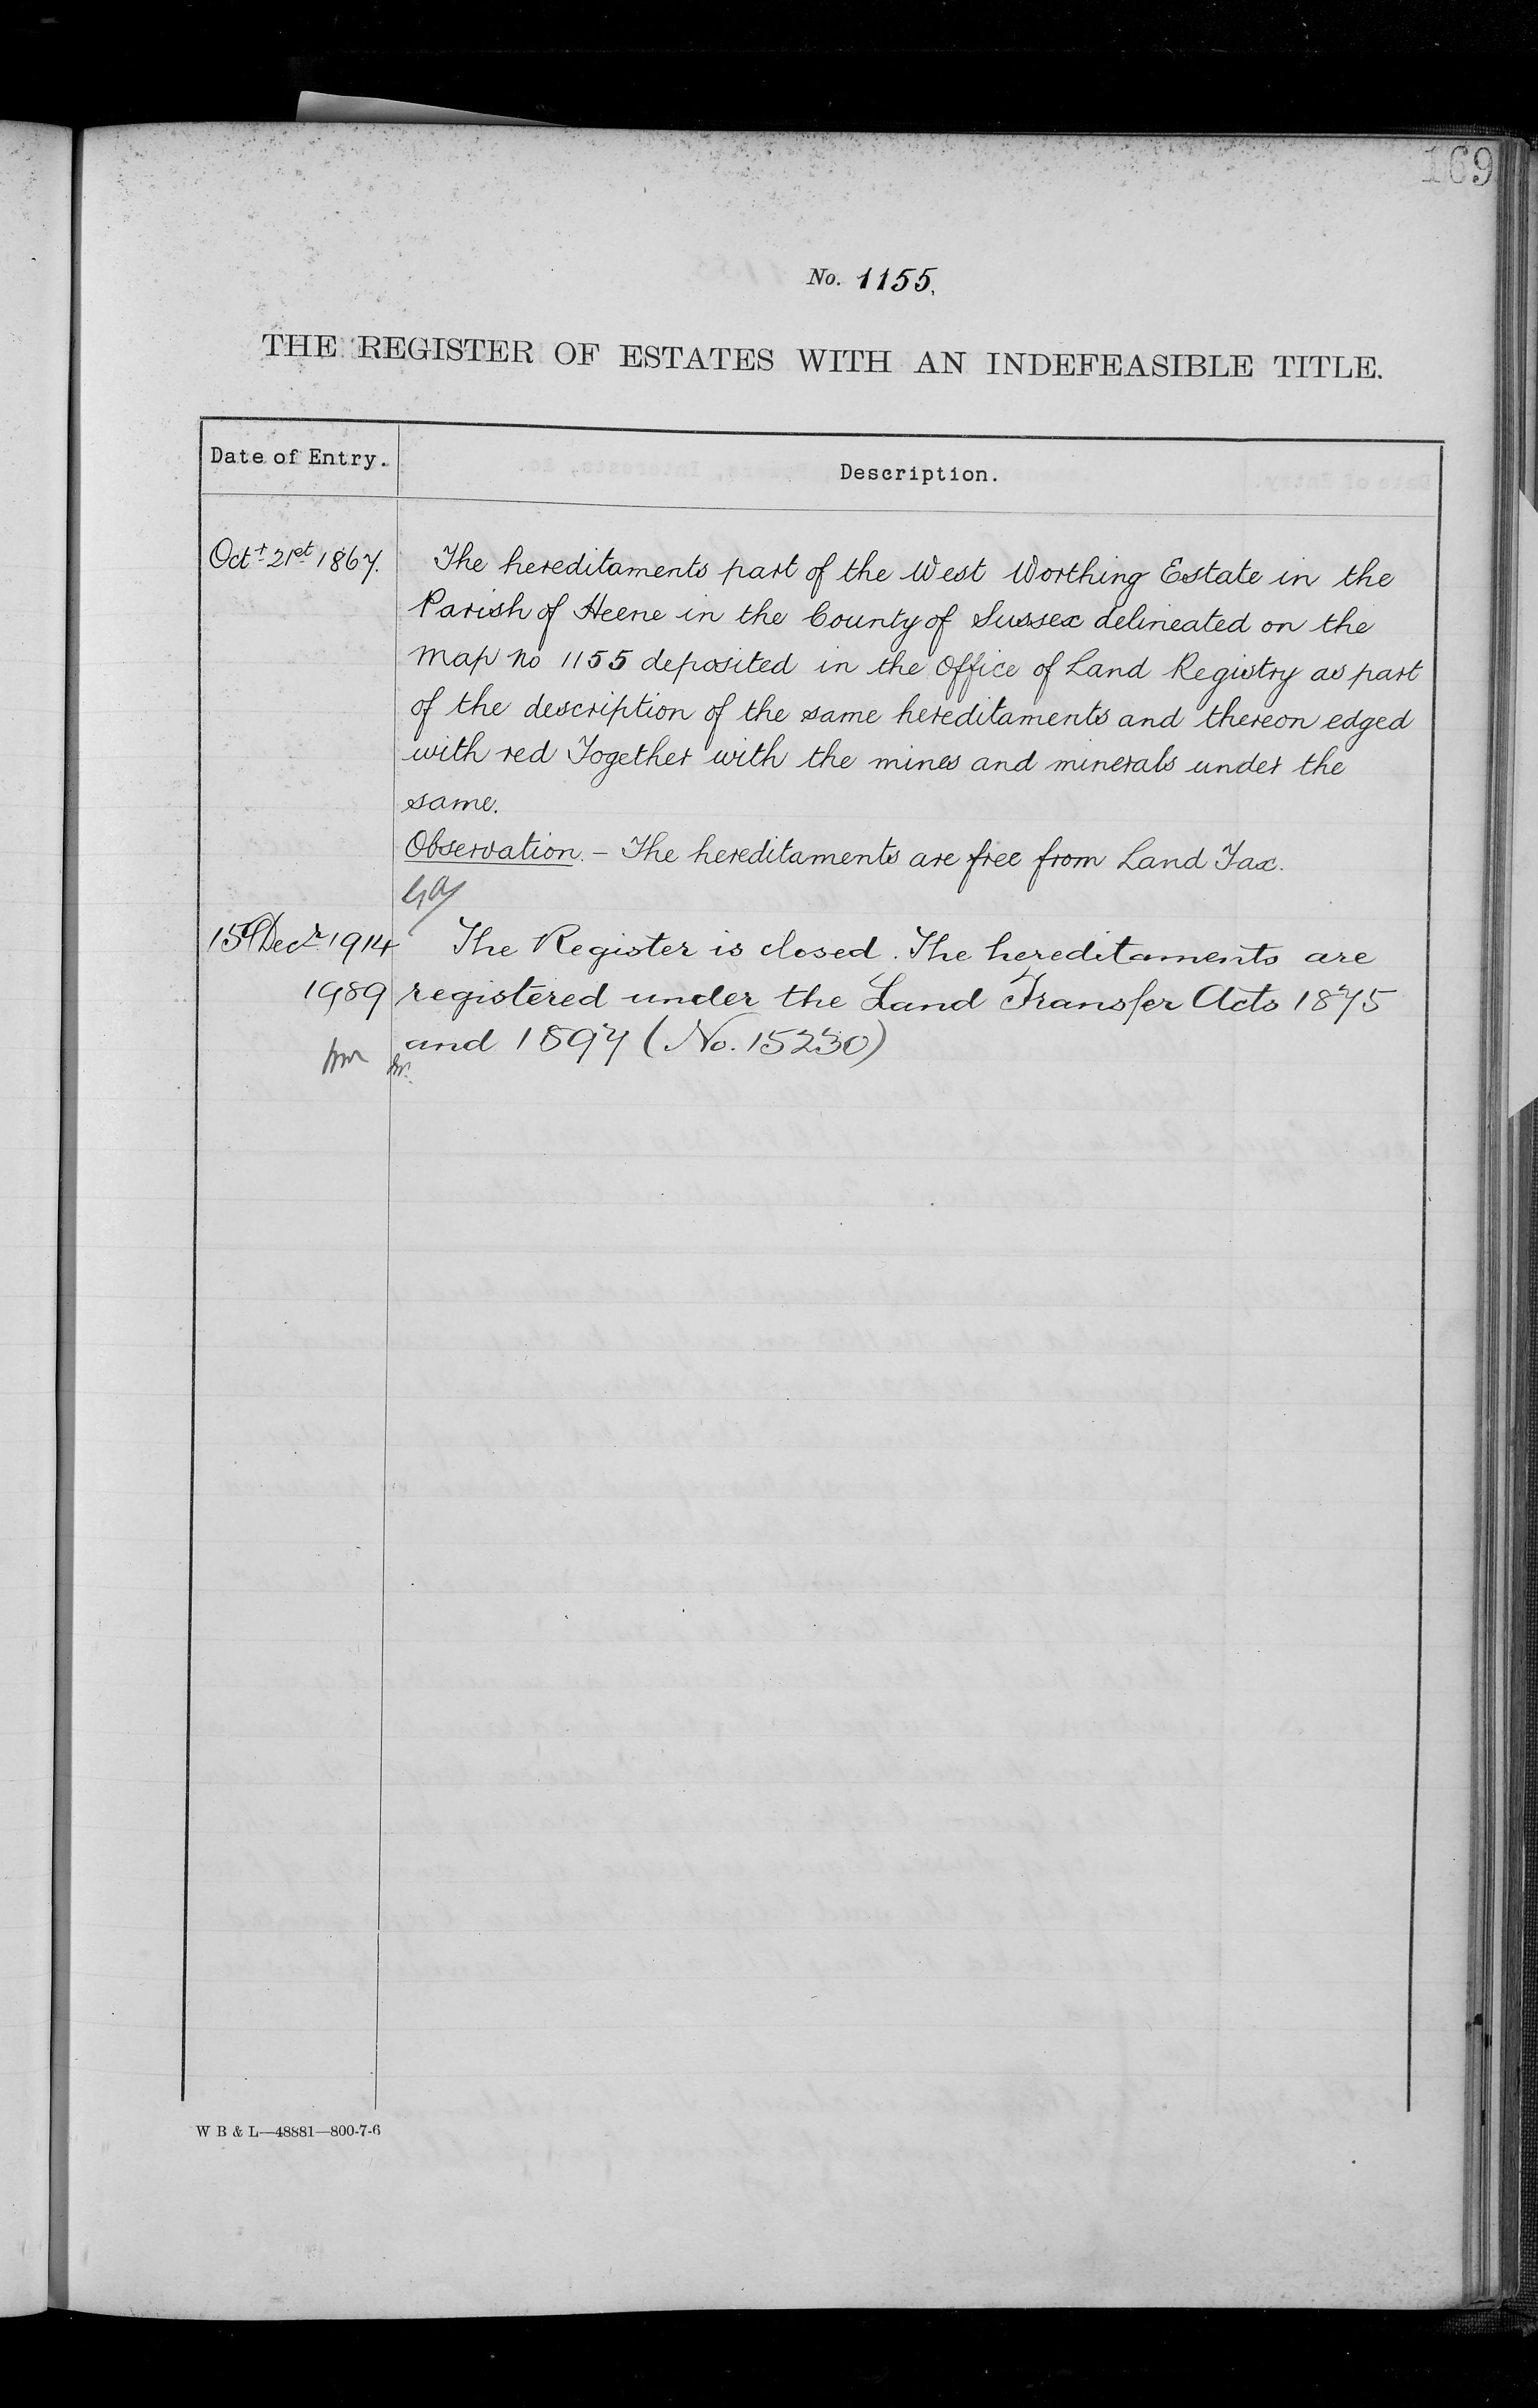 169
No. 1155.
THE REGISTER OF ESTATES WITH AN INDEFEASIBLE TITLE.
Date of Entry. Description.
Octr 21st 1867. The hereditaments part of the West Worthing Estate in the
Parish of Heene in the County of Sussex delineated on the
Map No 1155 deposited in the Office of Land Registry as part
of the description of the same hereditaments and thereon edged
with red Together with the mines and minerals under the
same.
Observation. – The hereditaments are free from Land Tax.
15th Decr 1914 The Register is closed. The hereditaments are
1989 registered under the Land Transfer Acts 1875
and 1897 (No. 15230)
W B & L—48881—800-7-6